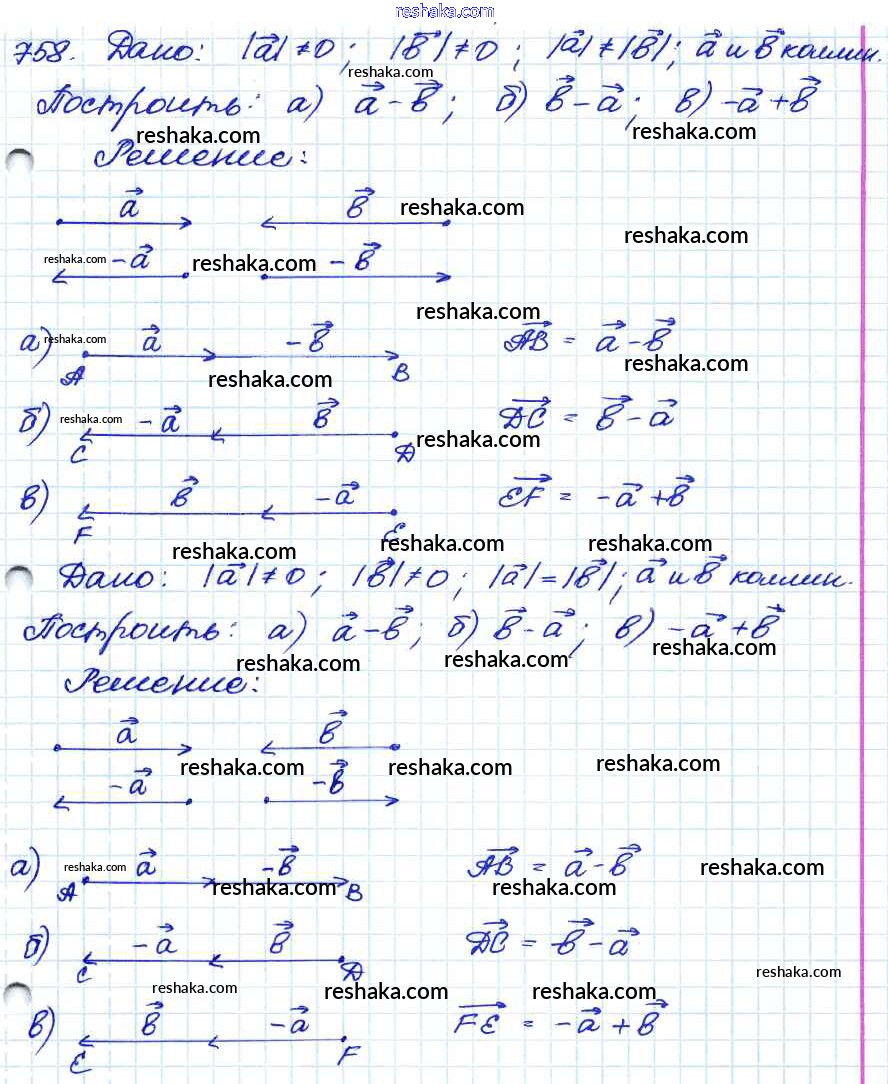 reshaka.com
758. Дано: |a⃗| ≠ 0; |b⃗| ≠ 0; |a⃗| ≠ |b⃗|; a⃗ и b⃗ коллин.
reshaka.com
Построить: а) a⃗ - b⃗; б) b⃗ - a⃗; в) -a⃗ + b⃗
reshaka.com reshaka.com
Решение:
a⃗ b⃗ reshaka.com
reshaka.com
reshaka.com -a⃗ reshaka.com -b⃗
reshaka.com
а) reshaka.com a⃗ -b⃗ AB⃗ = a⃗ - b⃗
A B
reshaka.com reshaka.com
б) reshaka.com -a⃗ b⃗ DC⃗ = b⃗ - a⃗
C D
reshaka.com
в) b⃗ -a⃗ EF⃗ = -a⃗ + b⃗
F E
reshaka.com reshaka.com reshaka.com
Дано: |a⃗| ≠ 0; |b⃗| ≠ 0; |a⃗| = |b⃗|; a⃗ и b⃗ коллин.
Построить: а) a⃗ - b⃗; б) b⃗ - a⃗; в) -a⃗ + b⃗
reshaka.com reshaka.com reshaka.com
Решение:
a⃗ b⃗
reshaka.com reshaka.com reshaka.com
-a⃗ -b⃗
а) reshaka.com a⃗ -b⃗ AB⃗ = a⃗ - b⃗ reshaka.com
A B
reshaka.com reshaka.com
б) -a⃗ b⃗ DC⃗ = b⃗ - a⃗
C D
reshaka.com
reshaka.com reshaka.com reshaka.com
в) b⃗ -a⃗ FE⃗ = -a⃗ + b⃗
E F